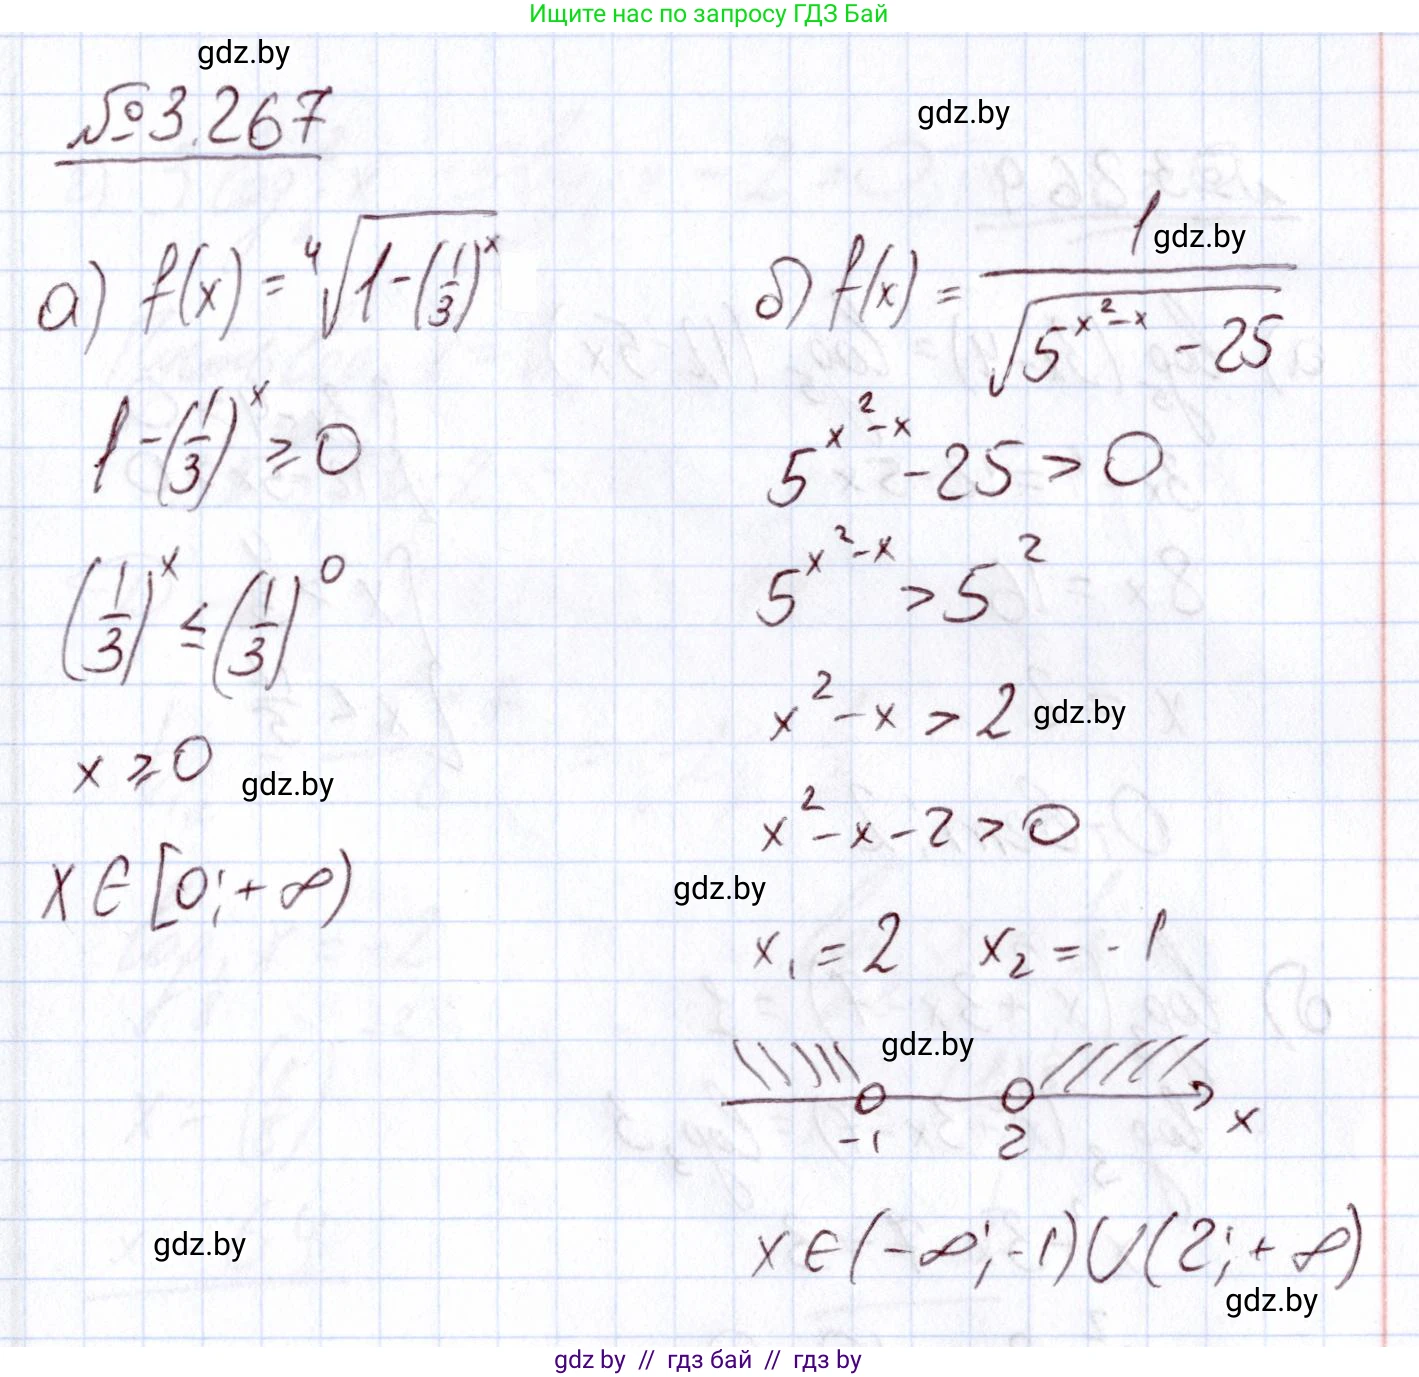 Ищите нас по запросу ГДЗ Бай
gdz.by
№3.267
gdz.by
а) f(x) = ⁴√(1-(1/3)^x)
1-(1/3)^x ≥ 0
(1/3)^x ≤ (1/3)^0
x ≥ 0
gdz.by
x ∈ [0; +∞)
gdz.by
б) f(x) = 1/√(5^(x²-x) - 25)
gdz.by
5^(x²-x) - 25 > 0
5^(x²-x) > 5²
x² - x > 2
gdz.by
x² - x - 2 > 0
gdz.by
x₁ = 2 x₂ = -1
gdz.by
-1 2 x
x ∈ (-∞; -1) ∪ (2; +∞)
gdz.by
gdz by // гдз бай // гдз by